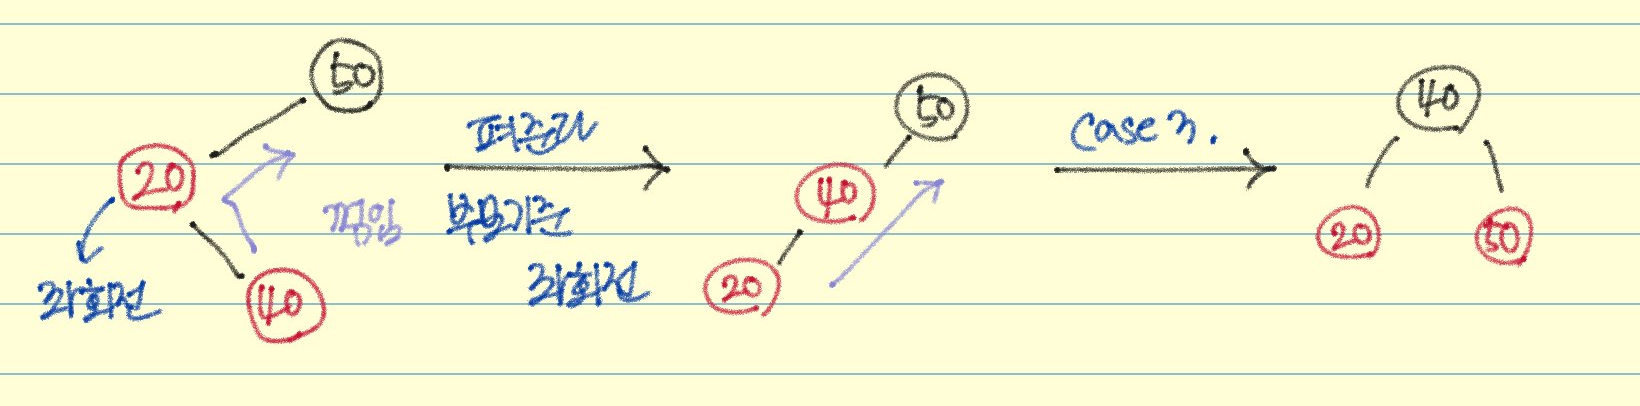 50
20
꺾임
좌회전
40
펴준다
부모기준
좌회전
50
40
20
Case 3.
40
20
50